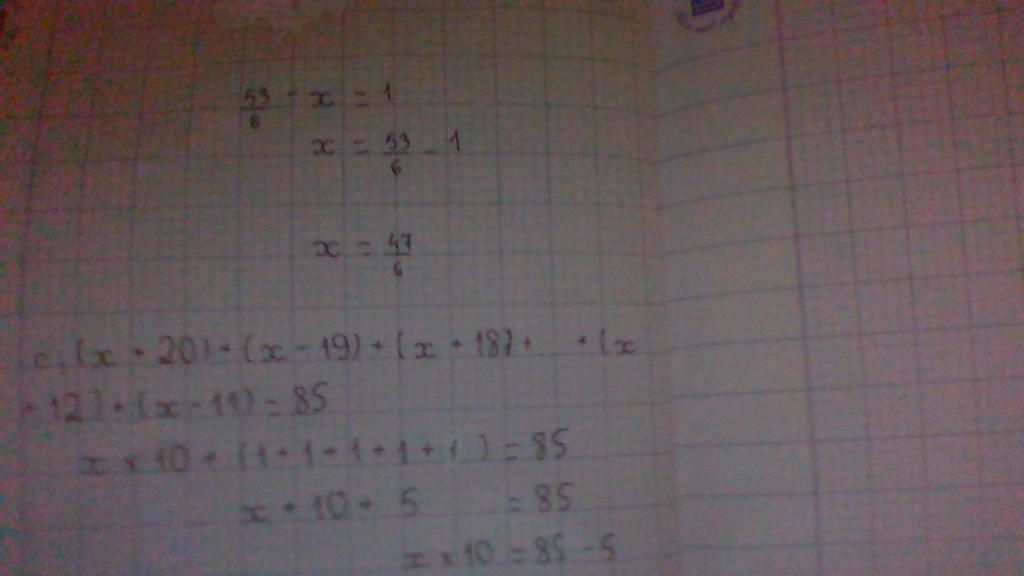 53/6 - x = 1
x = 53/6 - 1
x = 47/6
c, (x + 20) + (x - 19) + (x + 18) + ... + (x
+ 12) + (x - 11) = 85
x × 10 + (1 + 1 + 1 + 1 + 1) = 85
x × 10 + 5 = 85
x × 10 = 85 - 5